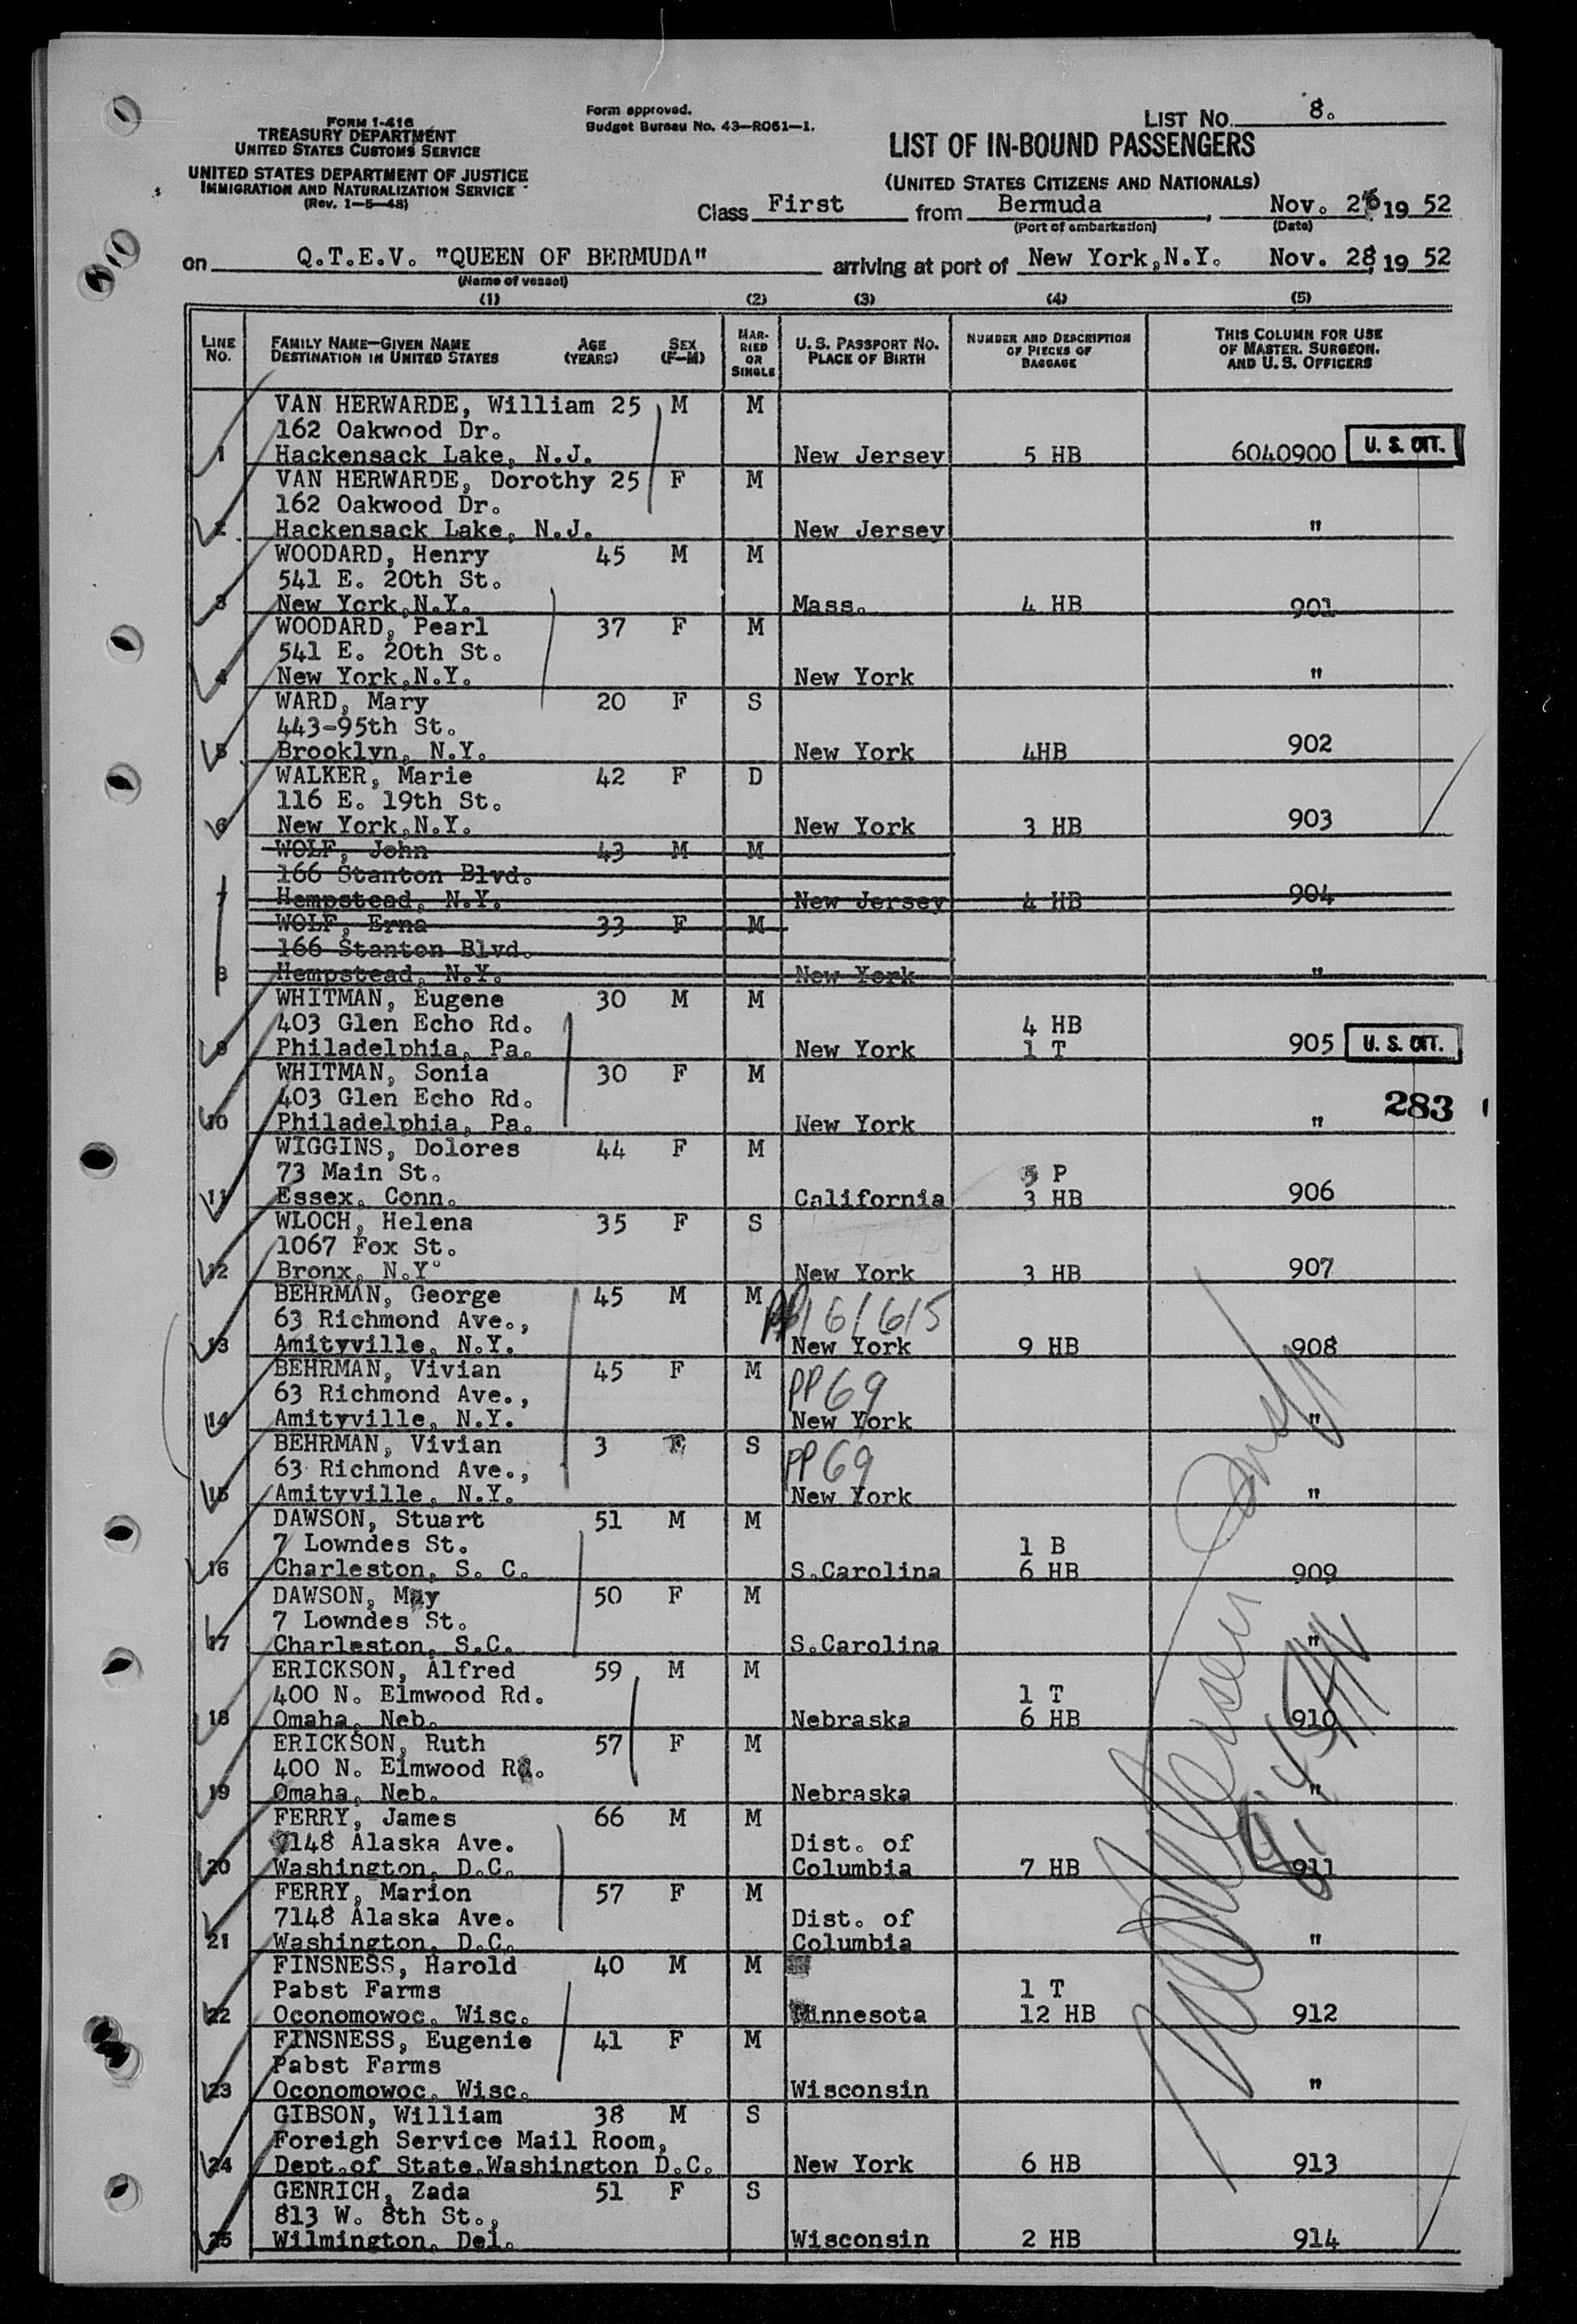 FORM 1-416
TREASURY DEPARTMENT
UNITED STATES CUSTOMS SERVICE
UNITED STATES DEPARTMENT OF JUSTICE
IMMIGRATION AND NATURALIZATION SERVICE
(Rev. 1-5-48)
Form approved.
Budget Bureau No. 43-R061-1.
LIST NO. 8.
LIST OF IN-BOUND PASSENGERS
(UNITED STATES CITIZENS AND NATIONALS)
Class First from Bermuda, Nov. 26 19 52
(Port of embarkation) (Date)
on Q.T.E.V. "QUEEN OF BERMUDA" arriving at port of New York,N.Y. Nov. 28, 19 52
(Name of vessel)
(1) (2) (3) (4) (5)
LINE NO.
FAMILY NAME—GIVEN NAME
DESTINATION IN UNITED STATES
AGE (YEARS)
SEX (F-M)
MARRIED OR SINGLE
U. S. PASSPORT NO.
PLACE OF BIRTH
NUMBER AND DESCRIPTION OF PIECES OF BAGGAGE
THIS COLUMN FOR USE OF MASTER, SURGEON, AND U. S. OFFICERS
VAN HERWARDE, William 25 M M
162 Oakwood Dr.
1 Hackensack Lake, N.J. New Jersey 5 HB 6040900 U. S. CIT.
VAN HERWARDE, Dorothy 25 F M
162 Oakwood Dr.
2 Hackensack Lake, N.J. New Jersey "
WOODARD, Henry 45 M M
541 E. 20th St.
3 New York,N.Y. Mass. 4 HB 901
WOODARD, Pearl 37 F M
541 E. 20th St.
4 New York,N.Y. New York "
WARD, Mary 20 F S
443-95th St.
5 Brooklyn, N.Y. New York 4HB 902
WALKER, Marie 42 F D
116 E. 19th St.
6 New York,N.Y. New York 3 HB 903
WOLF, John 43 M M
166 Stanton Blvd.
7 Hempstead, N.Y. New Jersey 4 HB 904
WOLF, Erna 33 F M
166 Stanton Blvd.
8 Hempstead, N.Y. New York "
WHITMAN, Eugene 30 M M
403 Glen Echo Rd. 4 HB
9 Philadelphia, Pa. New York 1 T 905 U. S. CIT.
WHITMAN, Sonia 30 F M
403 Glen Echo Rd. 283
10 Philadelphia, Pa. New York "
WIGGINS, Dolores 44 F M
73 Main St. P
11 Essex, Conn. California 3 HB 906
WLOCH, Helena 35 F S
1067 Fox St.
12 Bronx, N.Y. New York 3 HB 907
BEHRMAN, George 45 M M
63 Richmond Ave.,
13 Amityville, N.Y. New York 9 HB 908
BEHRMAN, Vivian 45 F M
63 Richmond Ave., PP 69
14 Amityville, N.Y. New York "
BEHRMAN, Vivian 3 F S
63 Richmond Ave., PP 69
15 Amityville, N.Y. New York "
DAWSON, Stuart 51 M M
7 Lowndes St. 1 B
16 Charleston, S. C. S.Carolina 6 HB 909
DAWSON, May 50 F M
7 Lowndes St.
17 Charleston, S.C. S.Carolina "
ERICKSON, Alfred 59 M M
400 N. Elmwood Rd. 1 T
18 Omaha, Neb. Nebraska 6 HB 910
ERICKSON, Ruth 57 F M
400 N. Elmwood Rd.
19 Omaha, Neb. Nebraska "
FERRY, James 66 M M
7148 Alaska Ave. Dist. of
20 Washington, D.C. Columbia 7 HB 911
FERRY, Marion 57 F M
7148 Alaska Ave. Dist. of
21 Washington, D.C. Columbia "
FINSNESS, Harold 40 M M
Pabst Farms 1 T
22 Oconomowoc, Wisc. Minnesota 12 HB 912
FINSNESS, Eugenie 41 F M
Pabst Farms
23 Oconomowoc, Wisc. Wisconsin "
GIBSON, William 38 M S
Foreigh Service Mail Room,
24 Dept.of State,Washington D.C. New York 6 HB 913
GENRICH, Zada 51 F S
813 W. 8th St.,
25 Wilmington, Del. Wisconsin 2 HB 914